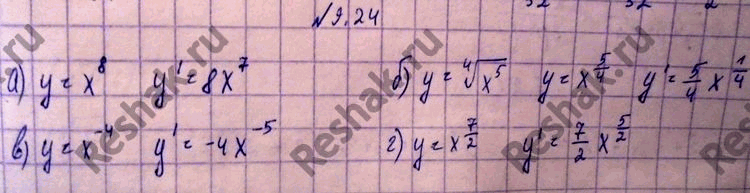 №9.24
а) y = x⁸ y' = 8x⁷ б) y = ⁴√x⁵ y = x^(5/4) y' = 5/4 x^(1/4)
в) y = x⁻⁴ y' = -4x⁻⁵ г) y = x^(7/2) y' = 7/2 x^(5/2)
Reshak.ru
Reshak.ru
Reshak.ru
Reshak.ru